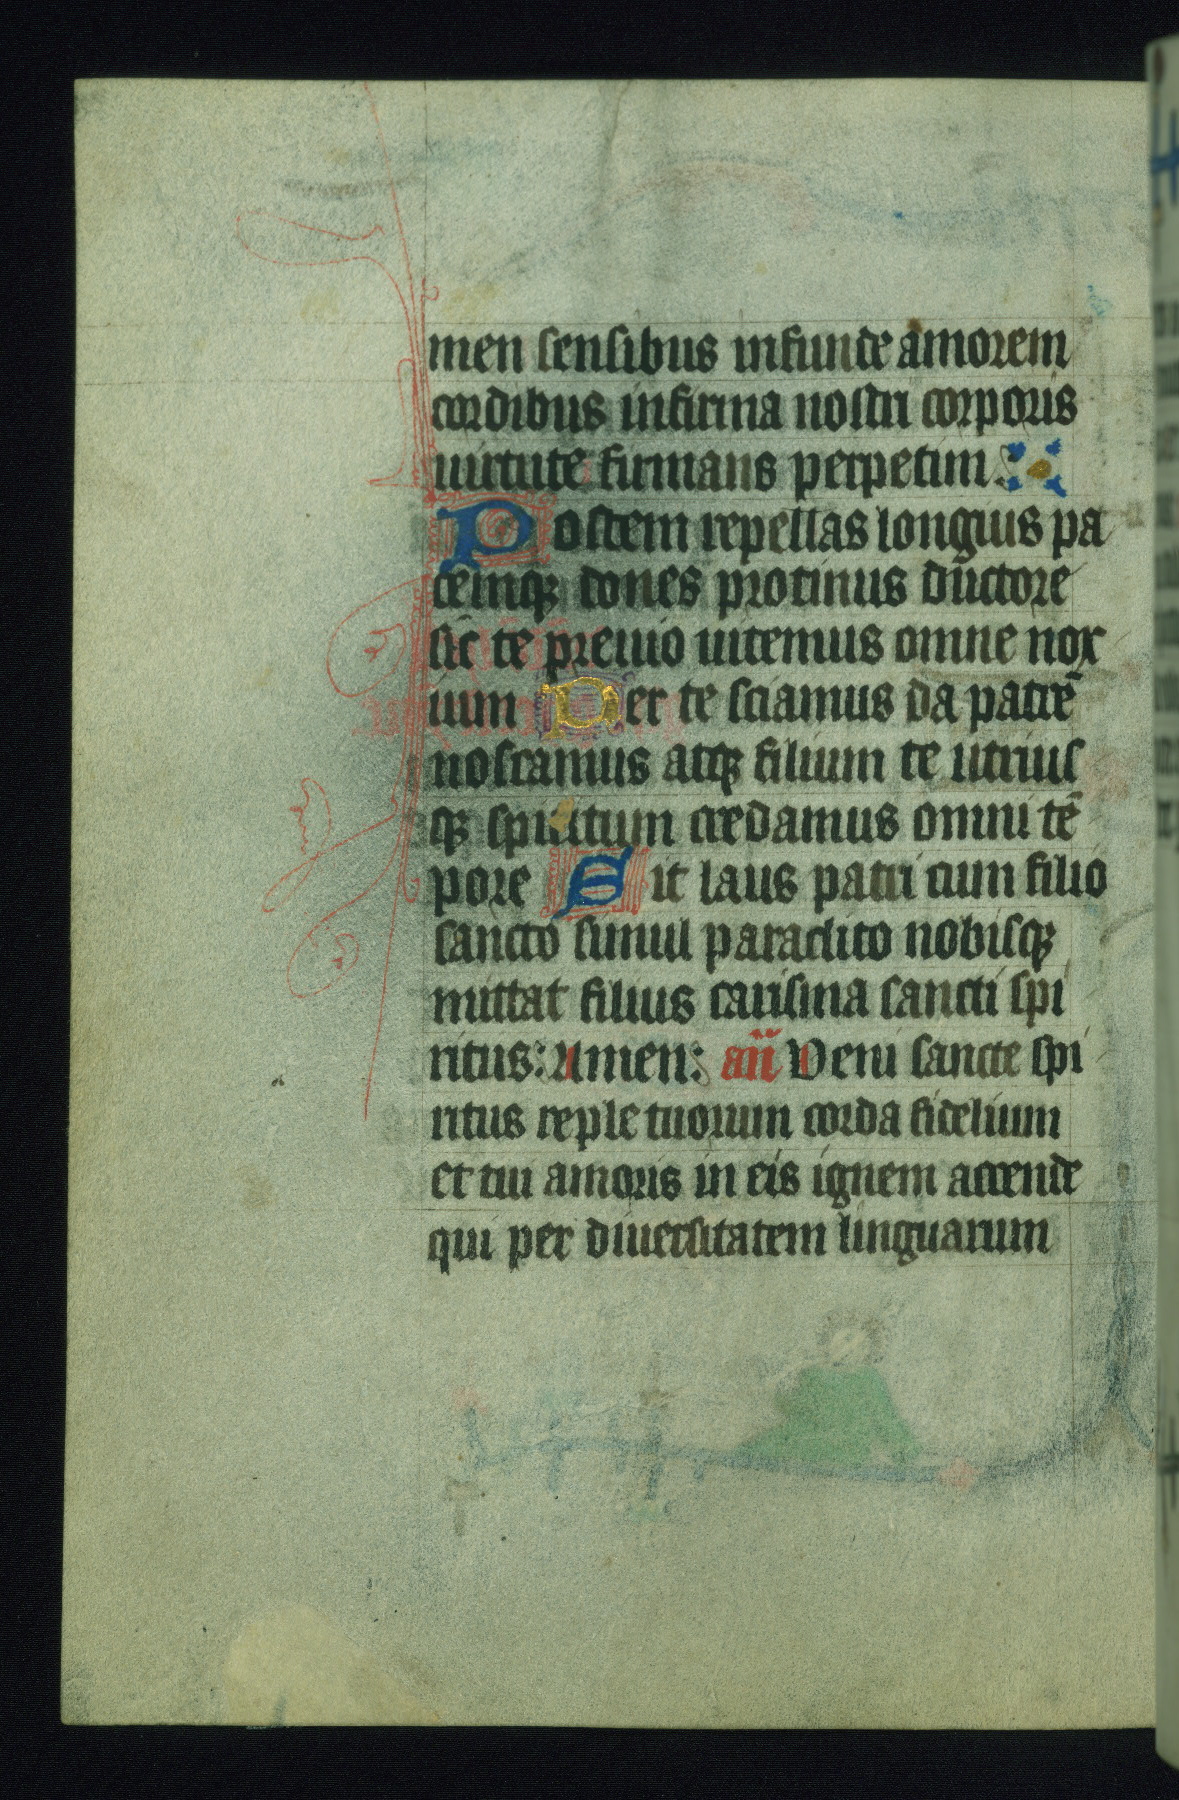 men sensibus infunde amorem
cordibus infirma nostri corporis
uirtute firmans perpetim.
Postem repellas longius pa
cemqꝫ dones protinus ductore
sic te preuio uitemus omne nox
ium Per te sciamus da patrē
noscamus atqꝫ filium te utrius
qꝫ spiritum credamus omni tē
pore Sit laus patri cum filio
sancto simul paraclito nobisqꝫ
mittat filius carisma sancti spi
ritus: Amen: añ Veni sancte spi
ritus reple tuorum corda fidelium
et tui amoris in eis ignem accende
qui per diuersitatem linguarum